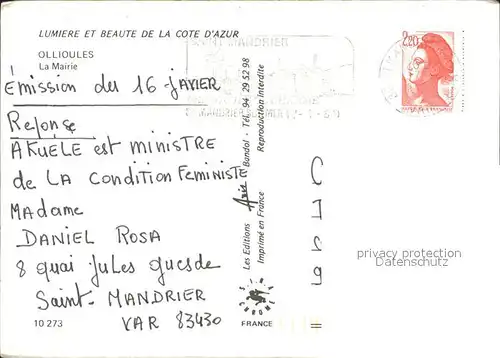 LUMIERE ET BEAUTE DE LA COTE D'AZUR
OLLIOULES
La Mairie
Émission du 16 jAVIER
Reponse
AKUELE est MINISTRE
de LA CONDITION FEMINISTE
MADAME
DANIEL ROSA
8 quai Jules guesde
Saint-MANDRIER
VAR 83430
10 273
Les Editions Aris Bandol - Tél. 94 29 52 98
Imprimé en France
Reproduction interdite
CHROME
FRANCE
2,20
SAINT MANDRIER
privacy protection
Datenschutz